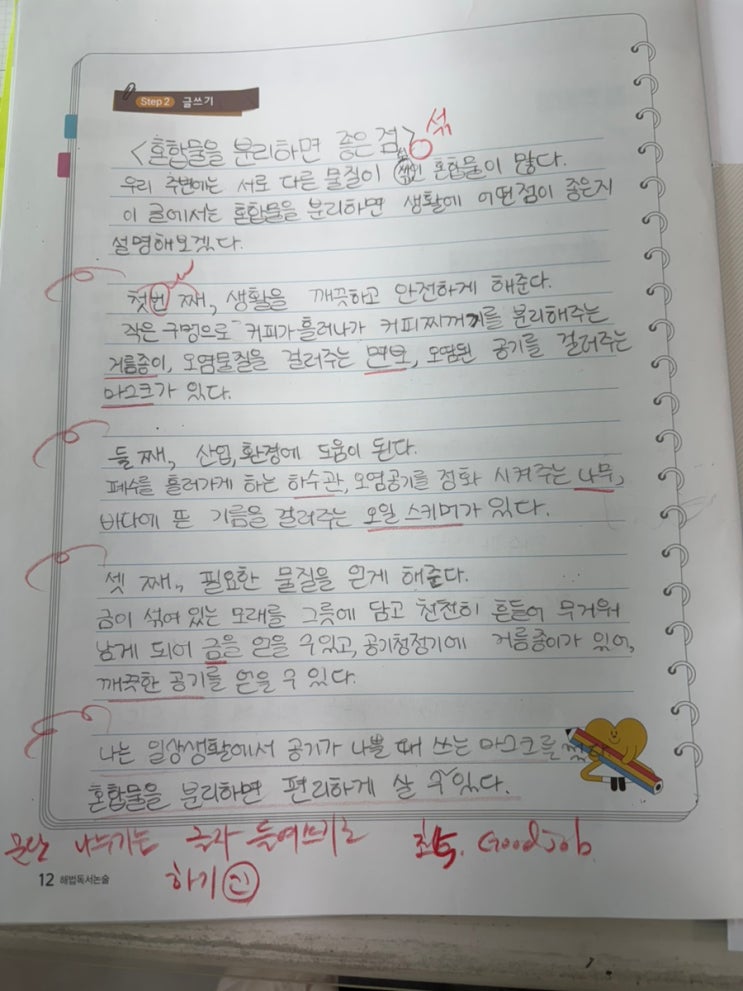 Step 2 글쓰기
<혼합물을 분리하면 좋은 점>
섞
우리 주변에는 서로 다른 물질이 섞인 혼합물이 많다.
이 글에서는 혼합물을 분리하면 생활에 어떤점이 좋은지
설명해보겠다.
첫번 째, 생활을 깨끗하고 안전하게 해준다.
작은 구멍으로 커피가 흘러나가 커피찌꺼기를 분리해주는
거름종이, 오염물질을 걸러주는 오염된 공기를 걸러주는
마스크가 있다.
둘 째, 산업, 환경에 도움이 된다.
폐수를 흘러가게 하는 하수관, 오염공기를 정화 시켜주는 나무,
바다에 뜬 기름을 걸러주는 오일 스키머가 있다.
셋 째, 필요한 물질을 얻게 해준다.
금이 섞여 있는 모래를 그릇에 담고 천천히 흔들어 무거워
남게 되어 금을 얻을 수있고, 공기청정기에 거름종이가 있어,
깨끗한 공기를 얻을 수 있다.
나는 일상생활에서 공기가 나쁠 때 쓰는 마스크를
혼합물을 분리하면 편리하게 살 수 있다.
문단 나누기는 글자 들여쓰기로 Good Job.
하기
12 해법독서논술